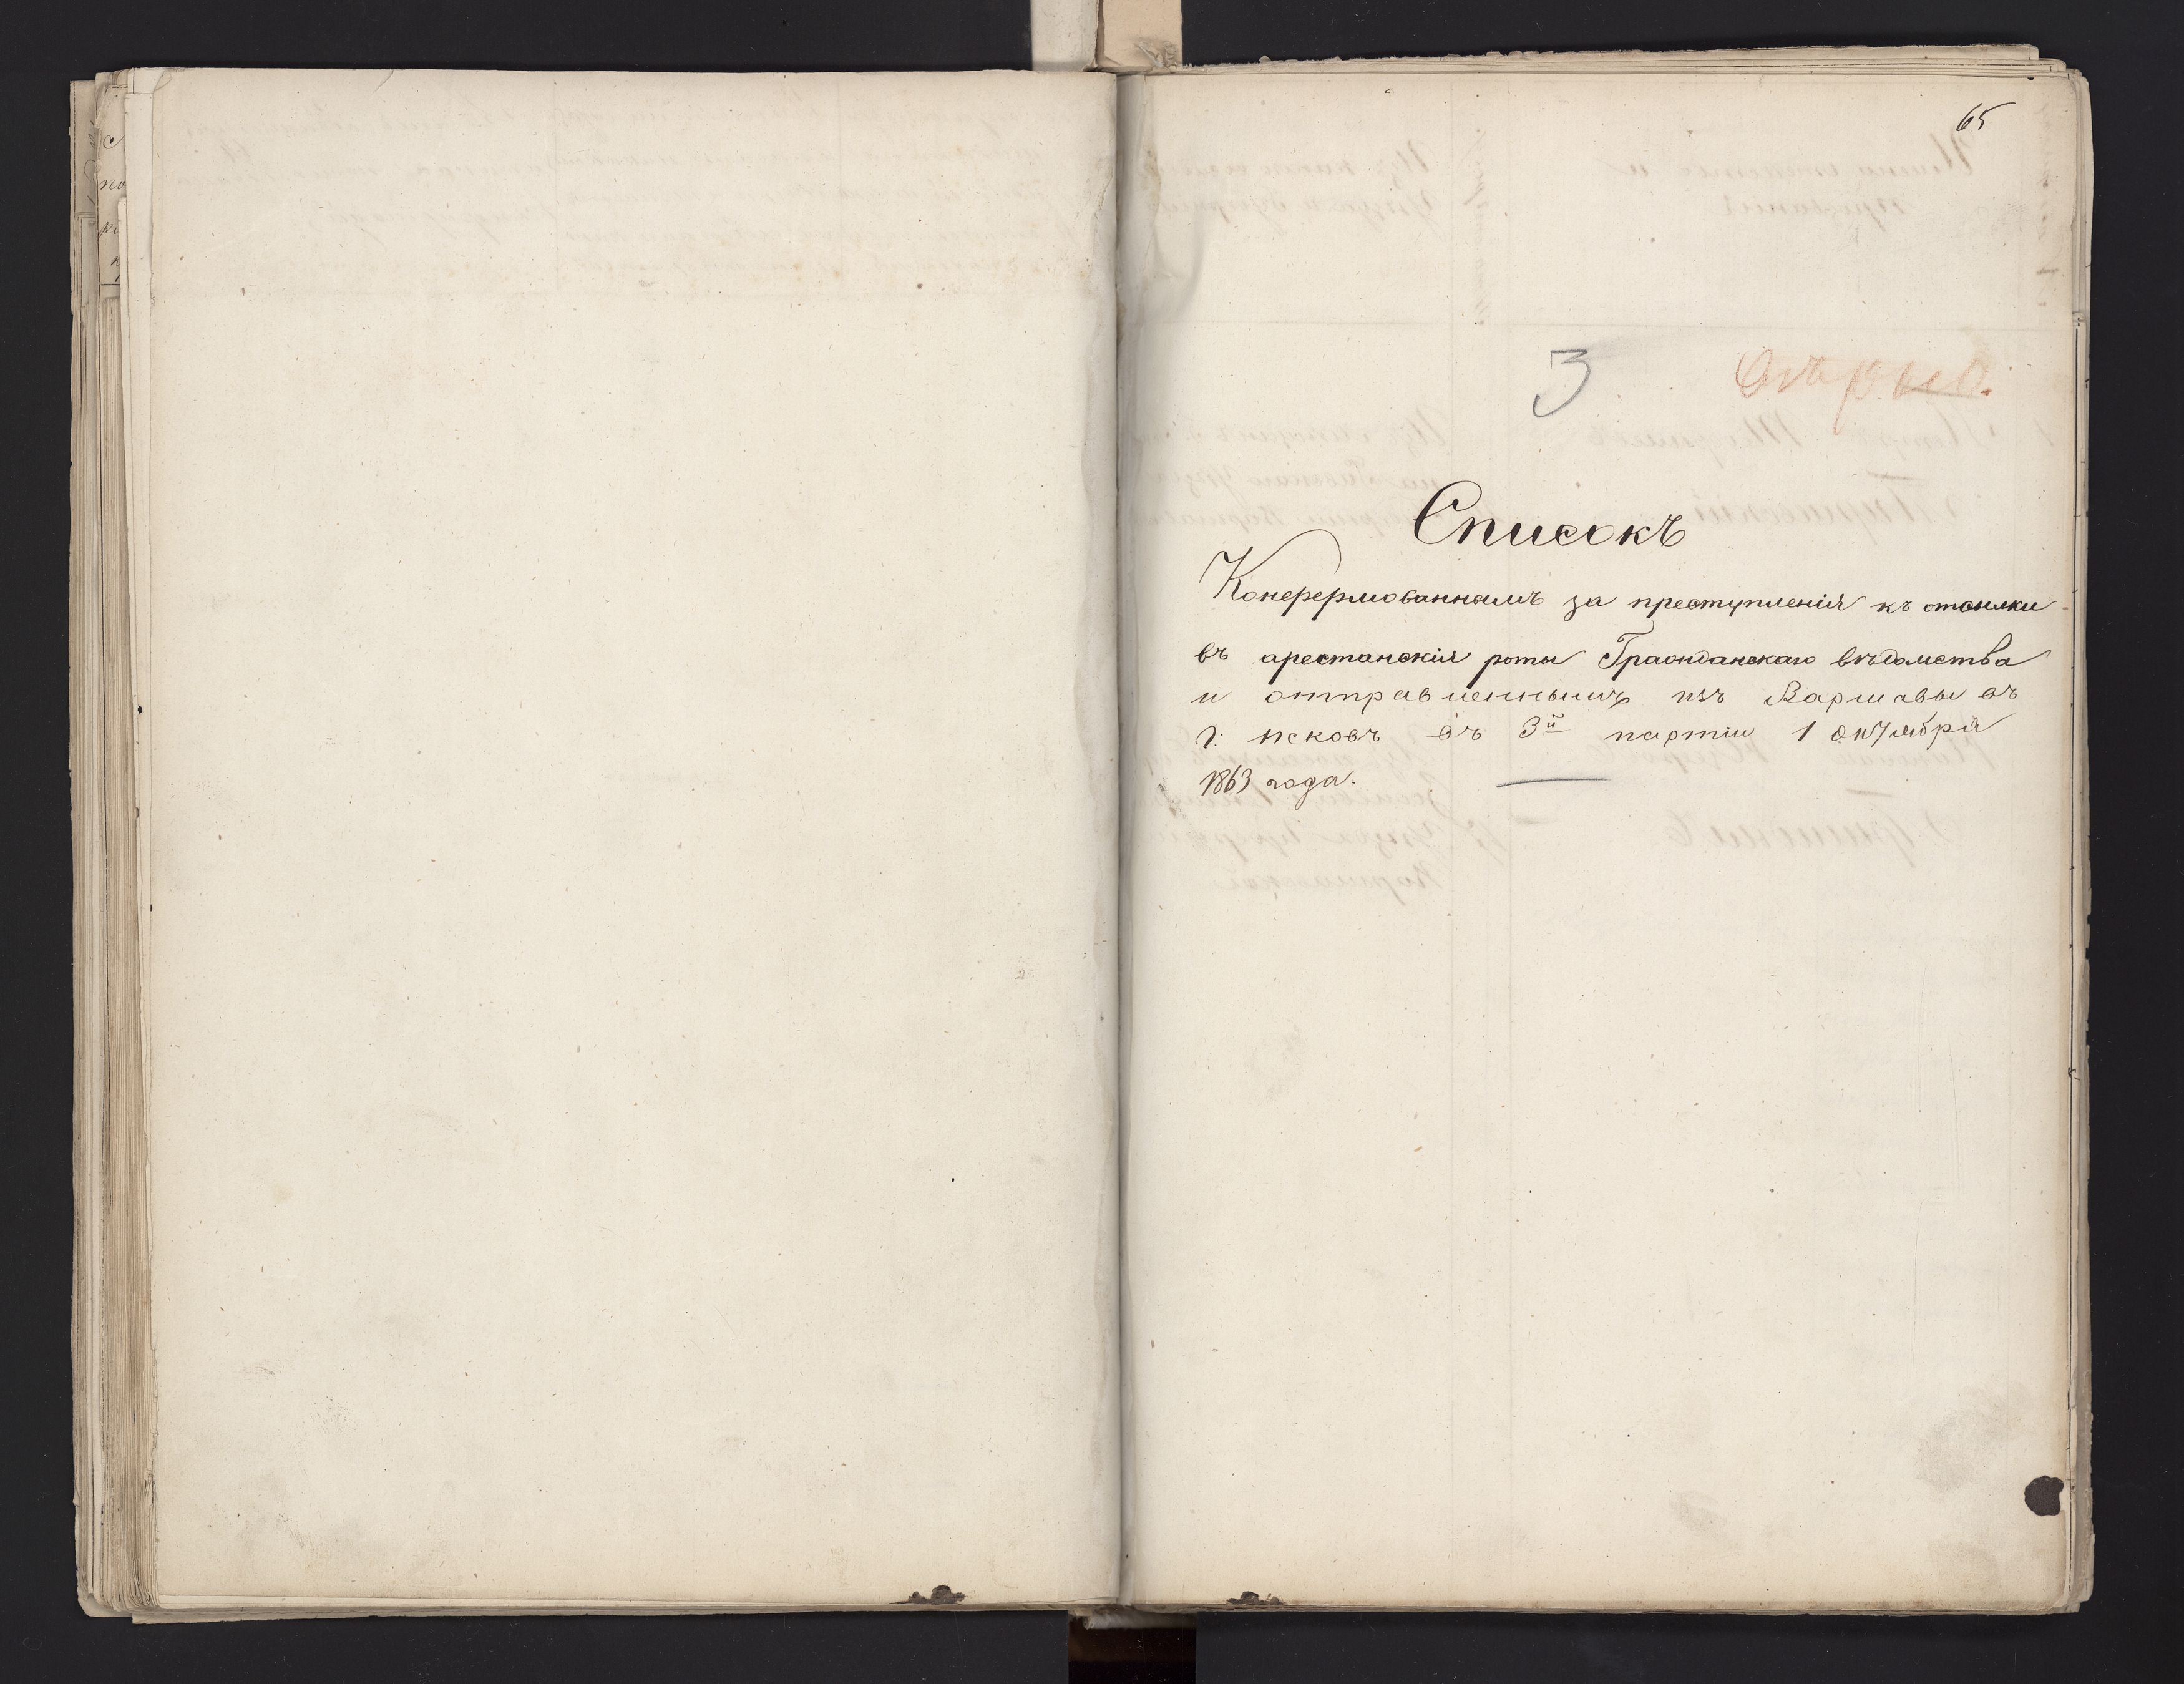 65
3
вѣрно.
Списокъ
Конфермованнымъ за преступленія къ отсылки
въ арестанскія роты Гражданскаго вѣдомства
и отправленнымъ изъ Варшавы въ
г: Псковъ въ 3й партіи 1 октября
1863 года.